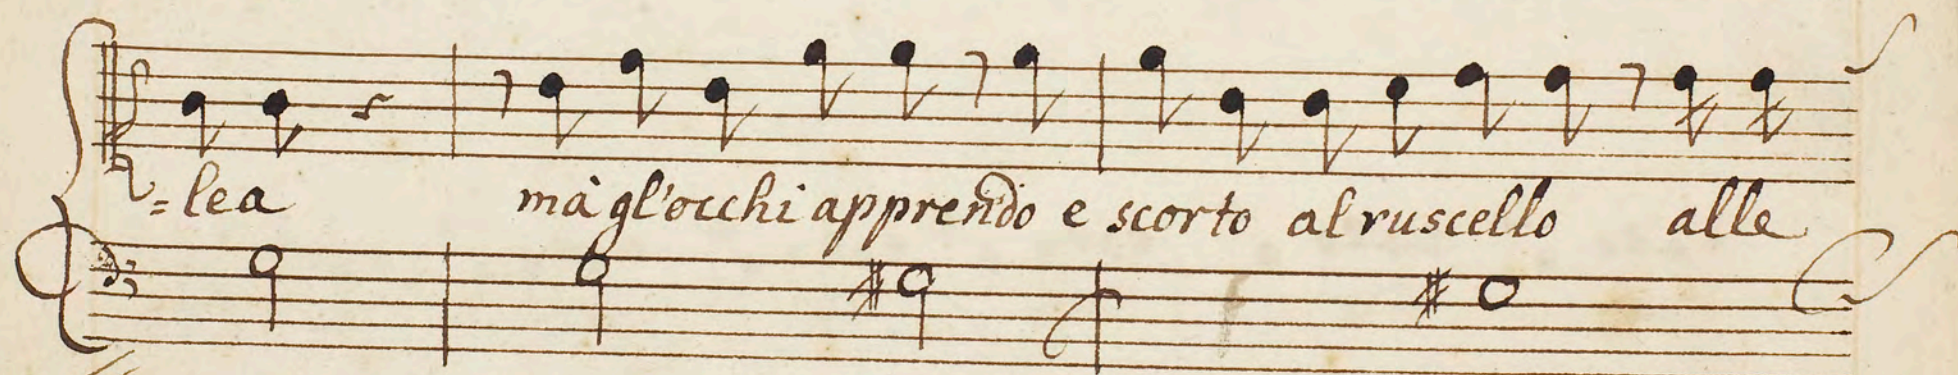 =lea mà gl'occhi apprendo e scorto al ruscello alle